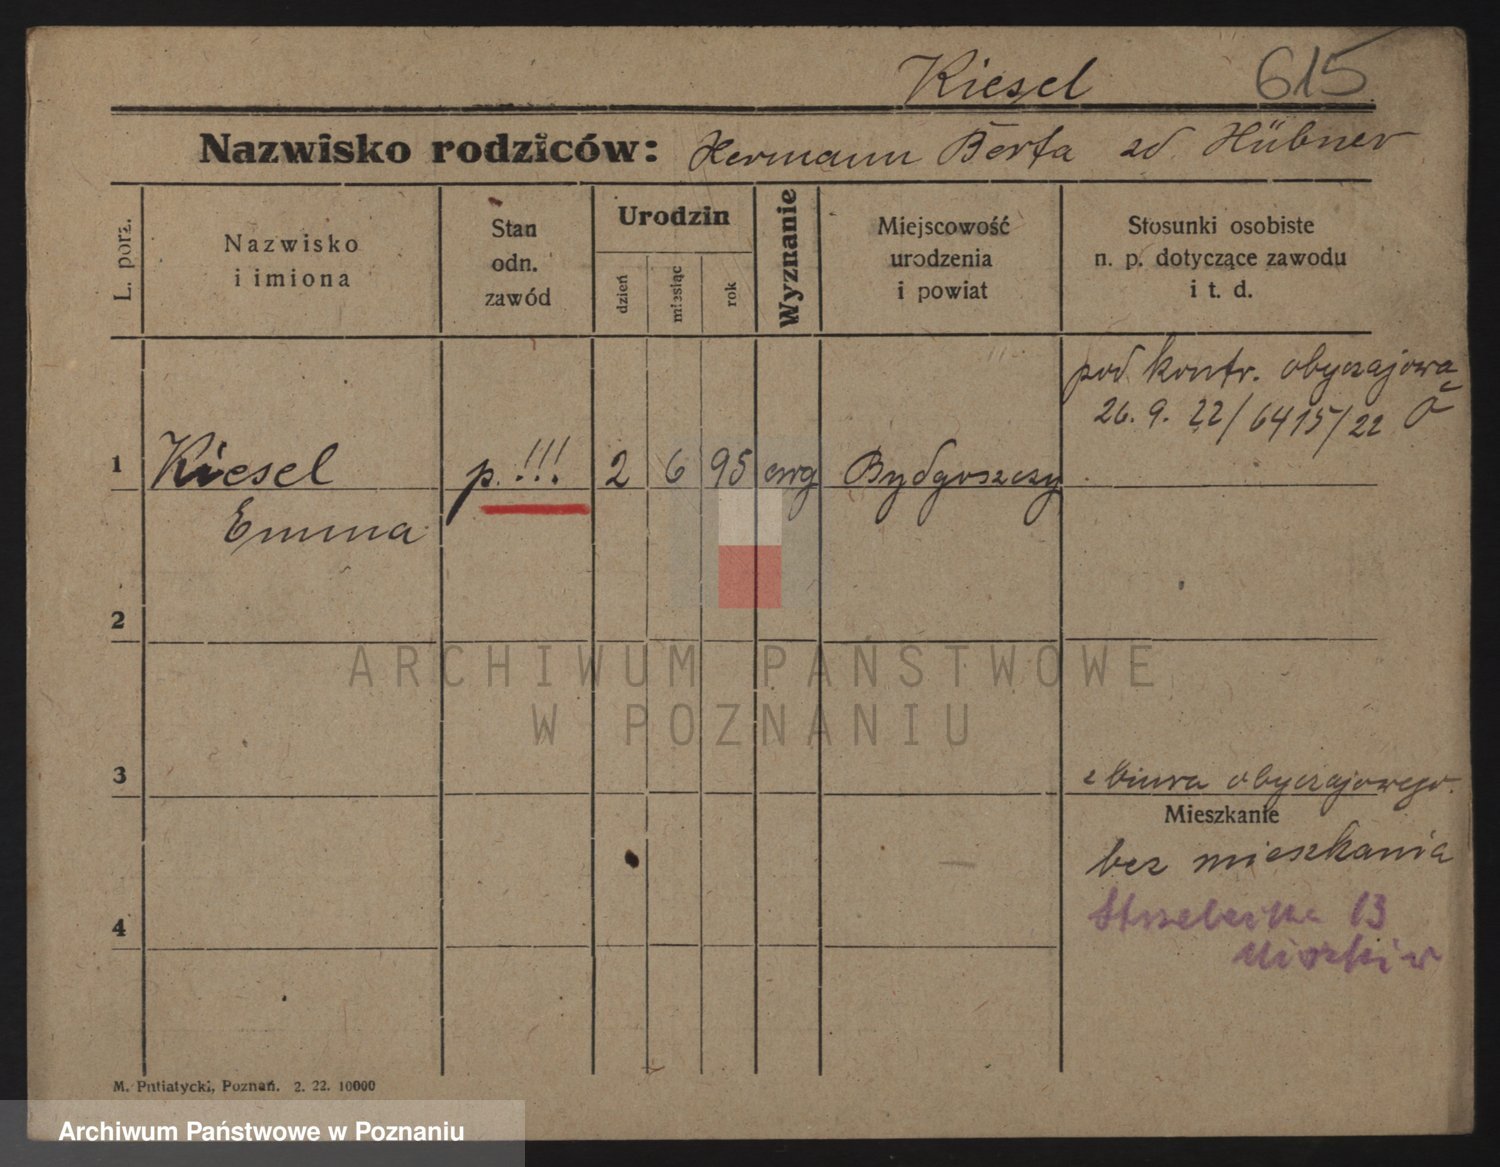 Kiesel 615
Nazwisko rodziców: Hermann Berta zd. Hübner
L. porz.
Nazwisko
i imiona
Stan
odn.
zawód
Urodzin
dzień
miesiąc
rok
Wyznanie
Miejscowość
urodzenia
i powiat
Stosunki osobiste
n. p. dotyczące zawodu
i t. d.
pod kontr. obyczajową
26. 9. 22/6415/22
1 Kiesel p. !!! 2 6 95 ewg Bydgoszczy
Emma
2
ARCHIWUM PAŃSTWOWE
W POZNANIU
3
z biura obyczajowego.
Mieszkanie
bez mieszkania
4
13
M. Putiatycki, Poznań. 2. 22. 10000
Archiwum Państwowe w Poznaniu